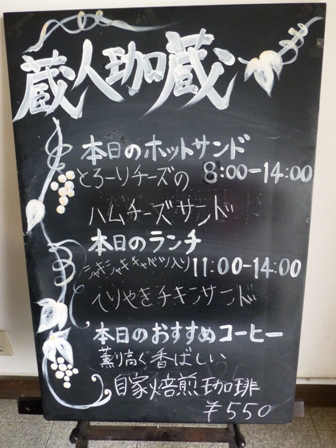 蔵人珈蔵
本日のホットサンド
とろーりチーズの 8:00-14:00
ハムチーズサンド
本日のランチ
シャキシャキキャベツ入り 11:00-14:00
てりやきチキンサンド
本日のおすすめコーヒー
薫り高く香ばしい
自家焙煎珈琲
¥550